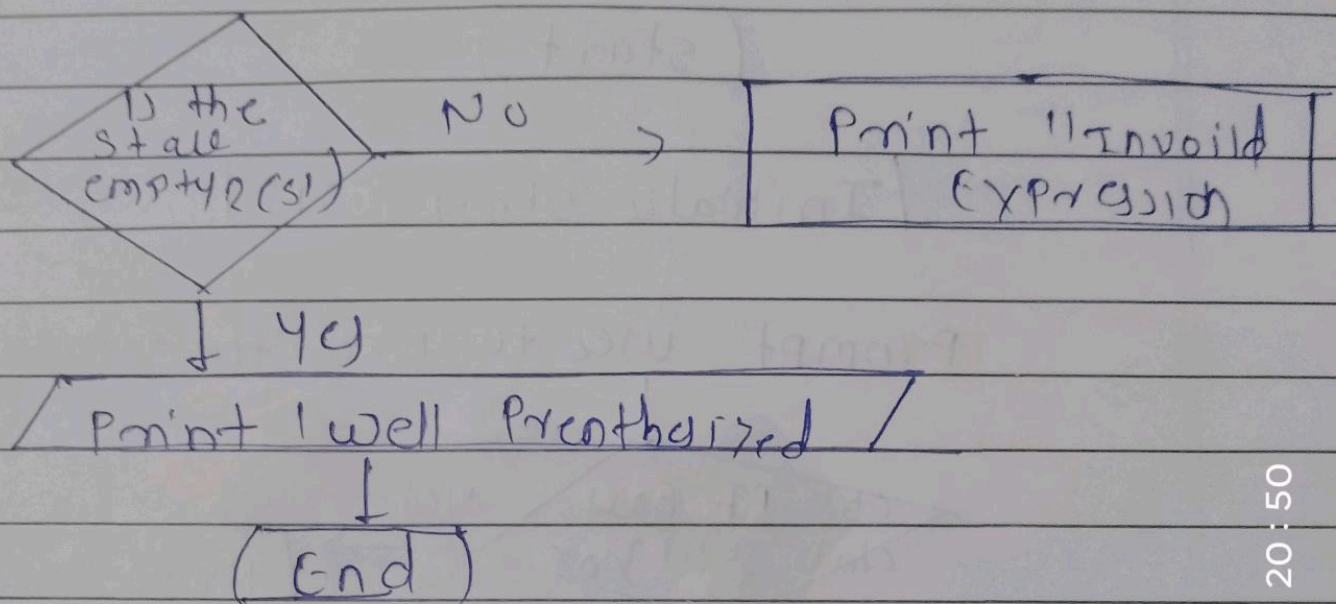 Is the
stack
empty?(s)
No
Print "Invoild
Expression
Yes
Print 'well Prenthesized
End
20:50